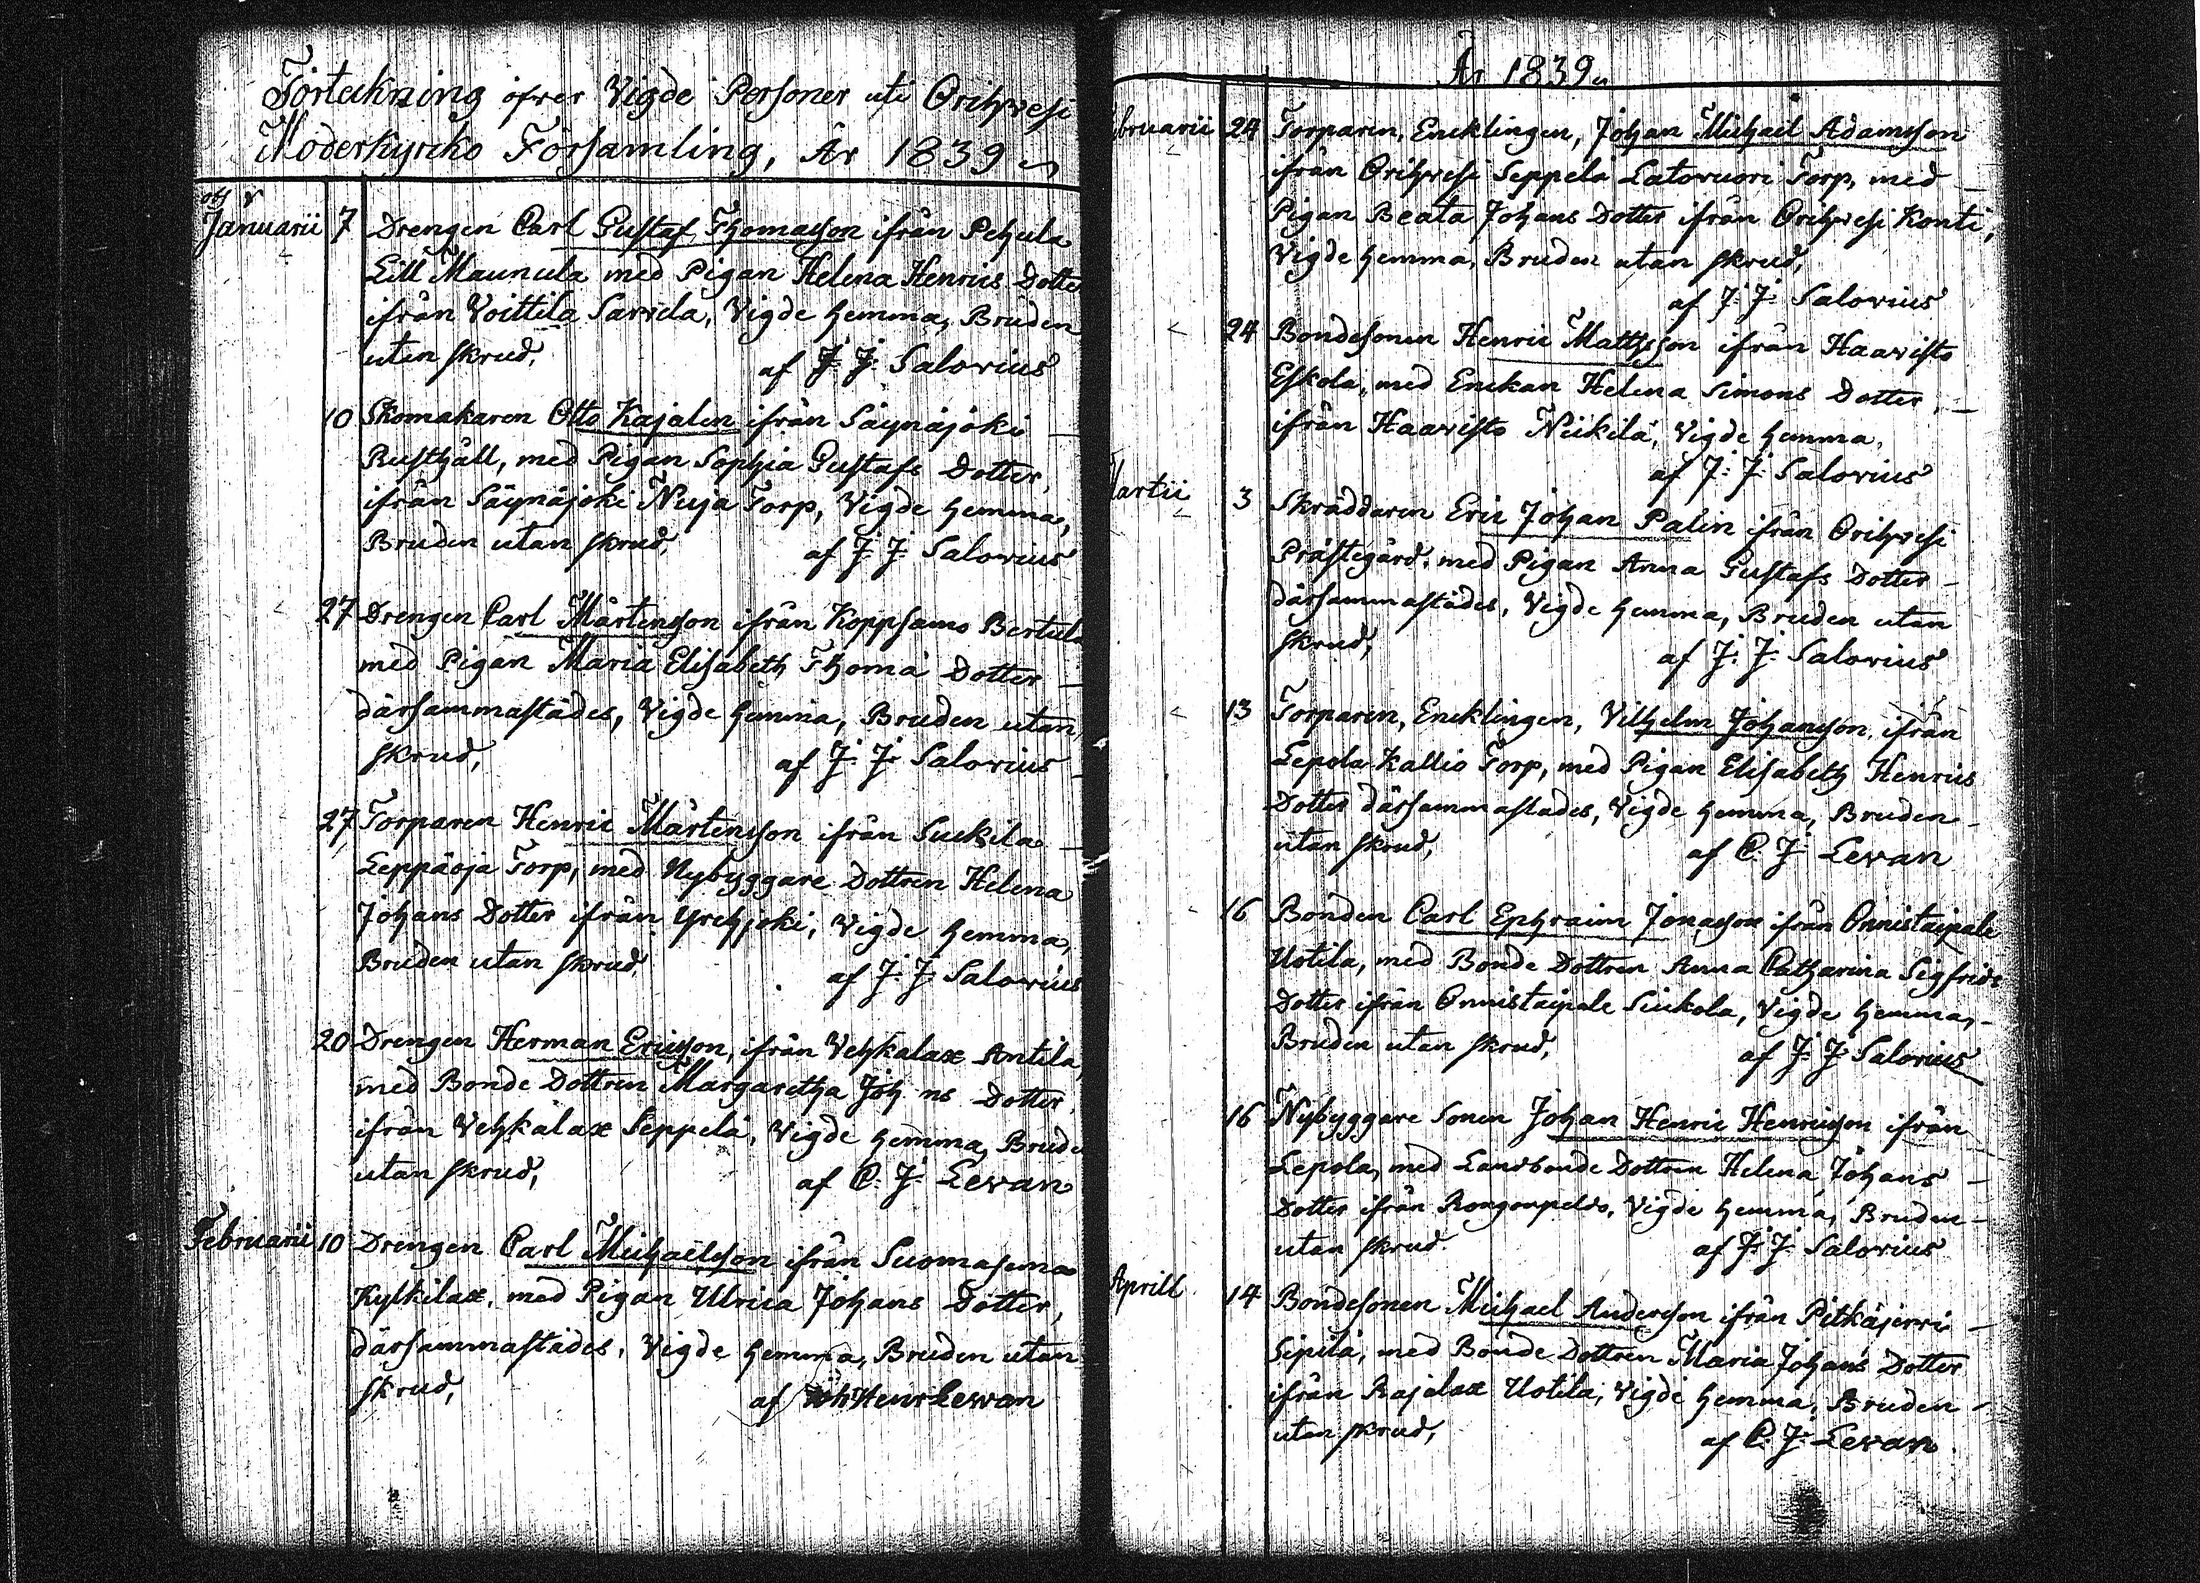 Förteckning öfver Vigde Personer uti Orihvesi
Moderkyrko Församling, År 1839
Januarii 7 Drengen Carl Gustaf Thomasson ifrån Pehula
Lill Maunula med Pigan Helena Henrics Dotter
ifrån Voittila Sarvela, Vigde hemma, Bruden
utan skrud, af J. J. Salovius
10 Skomakaren Otto Kajalen ifrån Säynäjoki
Rusthåll, med Pigan Sophia Gustafs Dotter,
ifrån Säynäjoki Nuja Torp, Vigde hemma,
Bruden utan skrud, af J. J. Salovius
27 Drengen Carl Mårtensson ifrån Koppsamo Bertula
med Pigan Maria Elisabeth Thomä Dotter
därsammastädes, Vigde hemma, Bruden utan
skrud, af J. J. Salovius
27 Torparen Henric Mårtensson ifrån Suckila
Leppäoja Torp, med Nybyggare Dottren Helena
Johans Dotter ifrån Yrehjoki, Vigde hemma,
Bruden utan skrud, af J. J. Salovius
20 Drengen Herman Ericsson, ifrån Vehkalax Antila,
med Bonde Dottren Margaretha Joh ns Dotter
ifrån Vehkalax Seppelä, Vigde hemma, Brude
utan skrud, af C. J. Levan
Februarii 10 Drengen Carl Michaelsson ifrån Suomasema
Kylkilax, med Pigan Ulrica Johans Dotter,
därsammastädes, Vigde hemma, Bruden utan
skrud, af Joh Henr Levan
År 1839
bruarii 24 Torparen, Encklingen, Johan Michael Adamsson
ifrån Orihvesi Seppelä Latovuori Torp, med
Pigan Beata Johans Dotter ifrån Orihvesi Konti,
Vigde hemma, Bruden utan skrud,
af J. J. Salovius
24 Bondesonen Henric Mattsson ifrån Haavisto
Eskola, med Enckan Helena Simons Dotter,
ifrån Haavisto Niekilä, Vigde hemma,
af J. J. Salovius
Martii 3 Skräddaren Eric Johan Palin ifrån Orihvesi
Prästegård, med Pigan Anna Gustafs Dotter
därsammastädes, Vigde hemma, Bruden utan
skrud, af J. J. Salovius
13 Torparen, Encklingen, Vilhelm Johansson, ifrån
Lepola Kallio Torp, med Pigan Elisabeth Henrics
Dotter därsammastades, Vigde hemma, Bruden
utan skrud, af C. J. Levan
16 Bonden Carl Ephraim Jonasson ifrån Onnistaipale
Uotila, med Bonde Dottren Anna Catharina Sigfrids
Dotter ifrån Onnistaipale Siukola, Vigde hemma,
Bruden utan skrud, af J. J. Salovius
16 Nybyggare Sonen Johan Henric Henricsson ifrån
Lepola, med Landbonde Dottren Helena Johans
Dotter ifrån Rongonpeldo, Vigde hemma, Bruden
utan skrud. af J. J. Salovius
Aprill 14 Bondesonen Michael Andersson ifrån Pitkäjervi
Sipilä, med Bonde Dottren Maria Johans Dotter
ifrån Rajalax Uotila, Vigde hemma, Bruden
utan skrud, af C. J. Levan